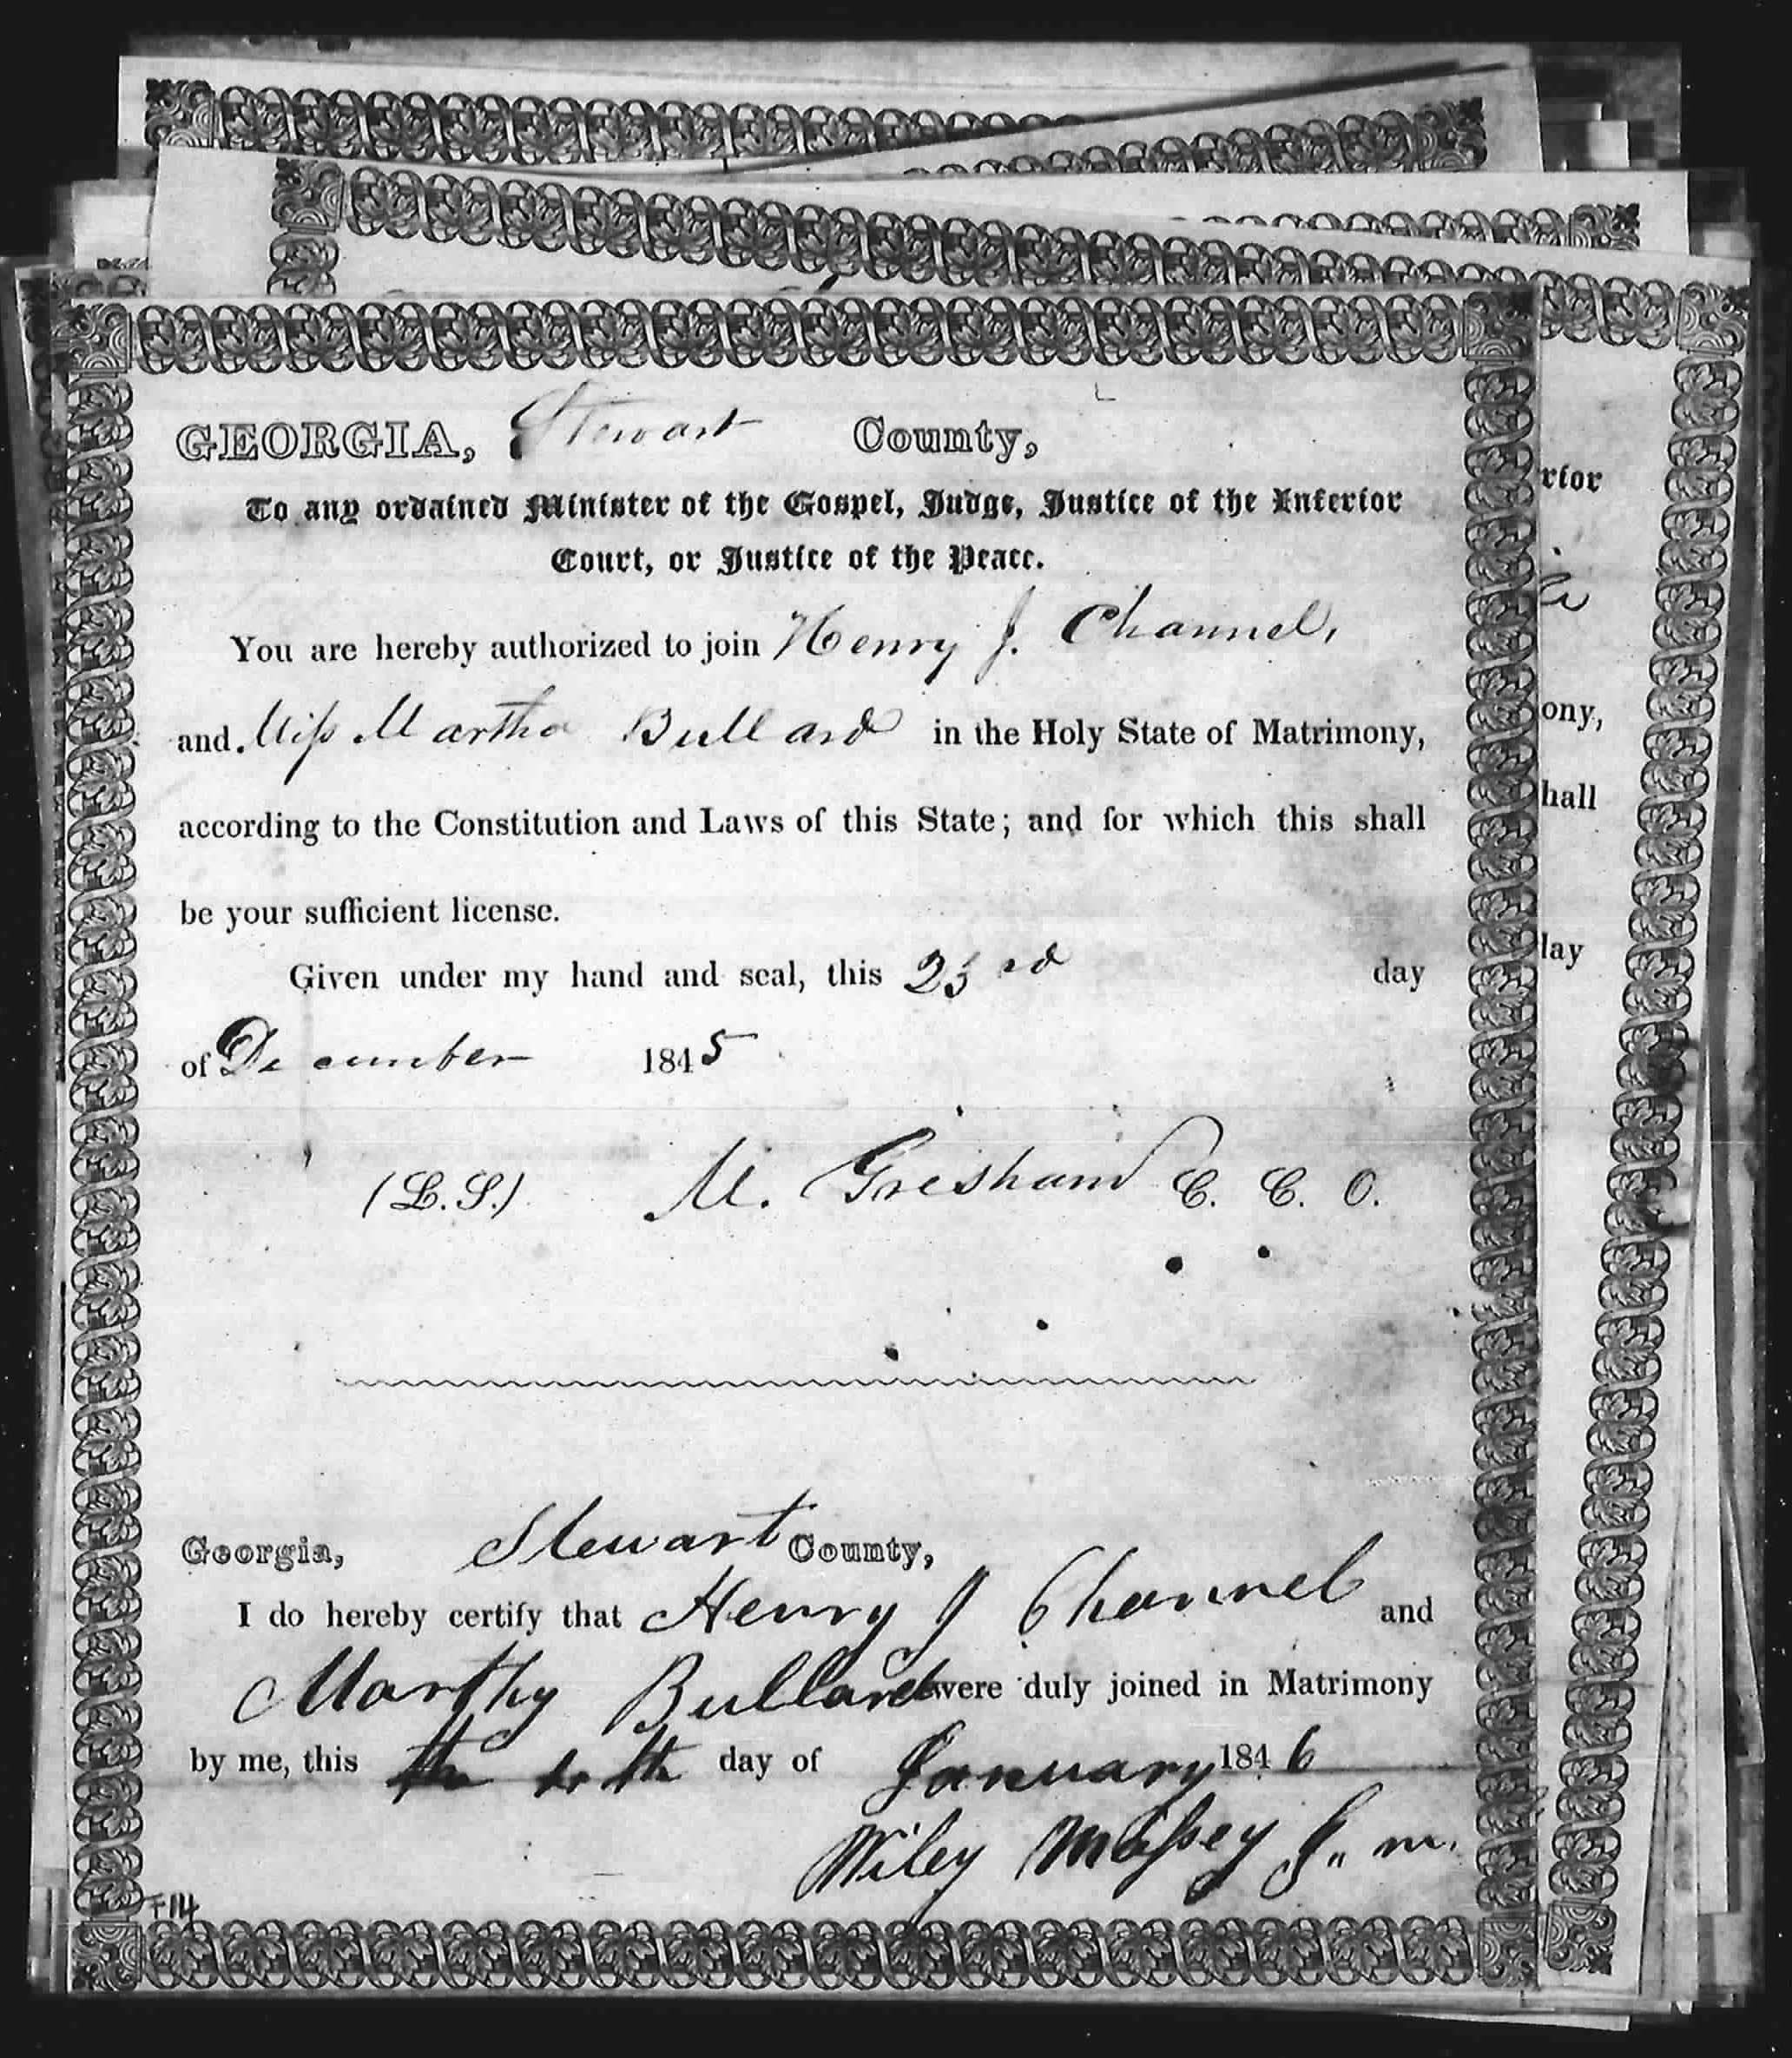 GEORGIA, Stewart County,
To any ordained Minister of the Gospel, Judge, Justice of the Inferior
Court, or Justice of the Peace.
You are hereby authorized to join Henry J. Channel,
and Miss Martha Bullard in the Holy State of Matrimony,
according to the Constitution and Laws of this State; and for which this shall
be your sufficient license.
Given under my hand and seal, this 23rd day
of December 1845
(L.S.) M. Gresham C. C. O.
Georgia, Stewart County,
I do hereby certify that Henry J Channel and
Marthy Bullard were duly joined in Matrimony
by me, this day of January 1846
Wiley Massey J,, m.
F14
rior
ony,
hall
lay